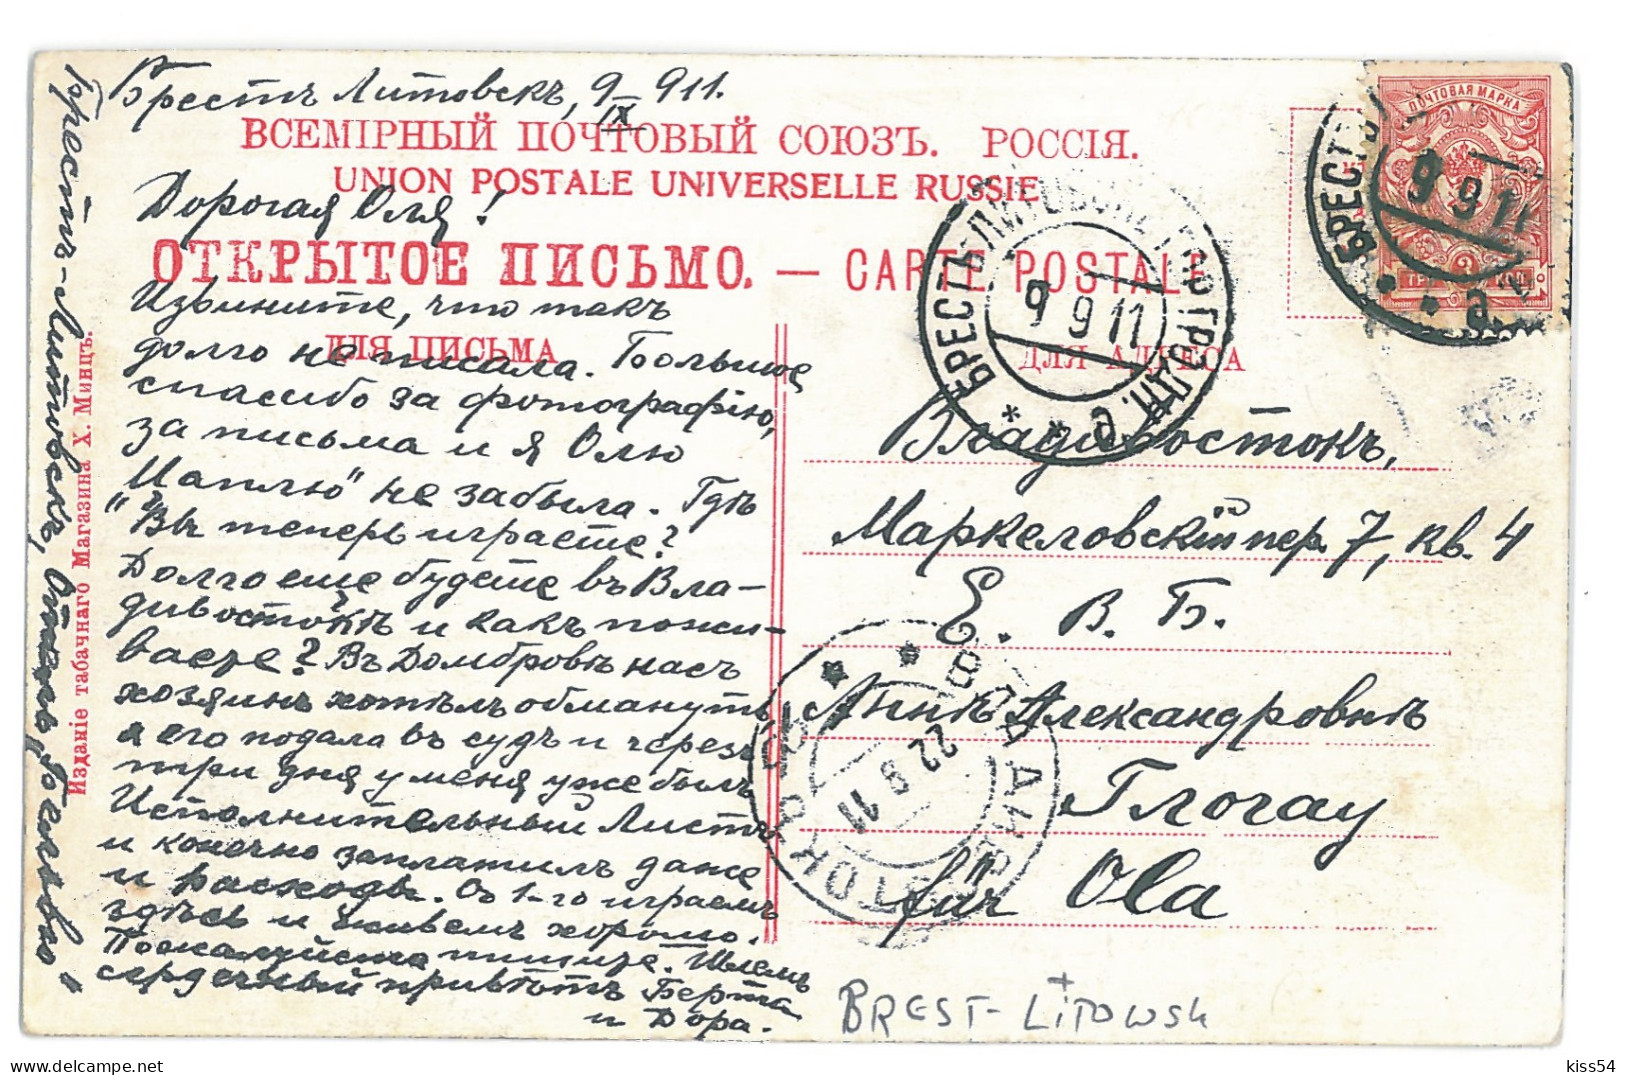 Брестъ Литовскъ, 9 IX 911.
ВСЕМІРНЫЙ ПОЧТОВЫЙ СОЮЗЪ. РОССІЯ.
UNION POSTALE UNIVERSELLE RUSSIE
Дорогая Оля!
ОТКРЫТОЕ ПИСЬМО. — CARTE POSTALE
ДЛЯ ПИСЬМА
ДЛЯ АДРЕСА
Извините, что такъ
долго не писала. Большое
спасибо за фотографію,
за письма и я Олю
Цаплю" не забыла. Гдѣ
"Вы теперь играете?
Долго еще будете въ Вла-
дивостокѣ и какъ пожи-
ваете? Въ Домбровѣ насъ
хозяинъ хотѣлъ обмануть,
я его подала въ судъ и черезъ
три дня у меня уже былъ
Исполнительный Листъ
и конечно заплатилъ даже
и расходы. Съ 1-го играемъ
здѣсь и живемъ хорошо.
Пожалуйста пишите. Шлемъ
сердечный привѣтъ Берта
и Дора.
Брестъ-Литовскъ, Отель "Бельвю"
Изданіе табачнаго Магазина Х. Минцъ.
Владивостокъ,
Маркеловскій пер. 7, кв. 4
Е. В. Б.
Аннѣ Александровнѣ
Глогау
für Ola
ПОЧТОВАЯ МАРКА
БРЕСТЪ
9 9 11
БРЕСТЪ-ЛИТОВСКЪ ГРОДН. Г.
9 9 11
ВЛАДИВОСТОКЪ
22 9 11
BREST-LITOWSK
kiss54